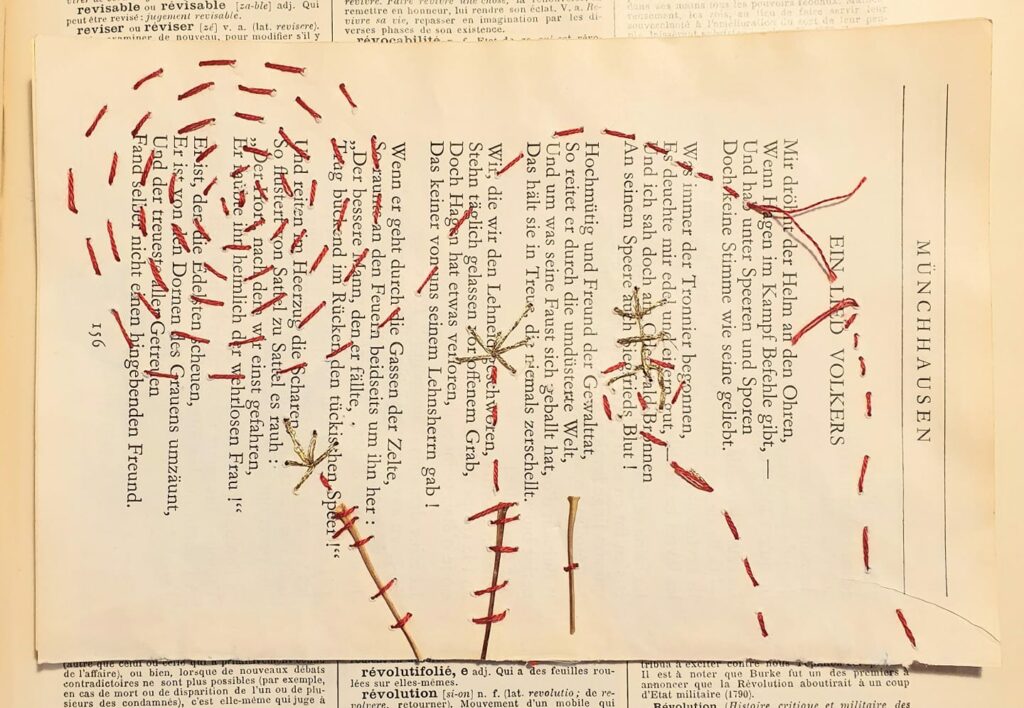 revisable ou révisable [za-ble] adj. Qui
peut être revisé : jugement revisable.
reviser ou réviser [zé] v. a. (lat. revisere).
examiner de nouveau, pour modifier s'il y
revivre. Faire revivre une chose, la
remettre en honneur, lui rendre son éclat. V. a. Re-
vivre sa vie, repasser en imagination par les di-
verses phases de son existence.
révocabilité n. f. Etat de ce qui est révo-
MÜNCHHAUSEN
EIN LIED VOLKERS
Mir dröhnt der Helm an den Ohren,
Wenn Hagen im Kampf Befehle gibt, —
Und hat unter Speeren und Sporen
Doch keine Stimme wie seine geliebt.
Was immer der Tronnier begonnen,
Es deuchte mir edel und gut,
Und ich sah doch am Odenwald Bronnen
An seinem Speere auch Siegfrieds Blut !
Hochmütig und Freund der Gewalttat,
So reitet er durch die umdüsterte Welt,
Und um was seine Faust sich geballt hat,
Das hält sie in Treue, die niemals zerschellt.
Wir, die wir den Lehneid geschworen,
Stehn täglich gelassen vor offenem Grab,
Doch Hagen hat etwas verloren,
Das keiner von uns seinem Lehnsherrn gab !
Wenn er geht durch die Gassen der Zelte,
So raunt's an den Feuern beidseits um ihn her :
„Der bessere Mann, den er fällte,
Trag bückend im Rücken den tückischen Speer !“
Und reiten im Heerzug die Scharen,
So flüstert von Sattel zu Sattel es rauh :
„Der Hort, nach dem wir einst gefahren,
Er raubte ihn heimlich der wehrlosen Frau !“
Er ist, der die Edelsten scheuen,
Er ist von den Dornen des Grauens umzäunt,
Und der treueste aller Getreuen
Fand selber nicht einen hingebenden Freund.
156
(autre que celui ou celle qui a primitivement connu
de l'affaire), ou bien, lorsque de nouveaux débats
contradictoires ne sont plus possibles (par exemple,
en cas de mort ou de disparition de l'un ou de plu-
sieurs des condamnés), c'est elle-même qui juge à
révolutifolié, e adj. Qui a des feuilles rou-
lées sur elles-mêmes.
révolution [si-on] n. f. (lat. revolutio ; de re-
volvere, retourner). Mouvement d'un mobile qui
tribua à exciter contre nous
Il est à noter que Burke fut un des premiers à
annoncer que la Révolution aboutirait à un coup
d'Etat militaire (1790).
Révolution (Histoire critique et militaire des